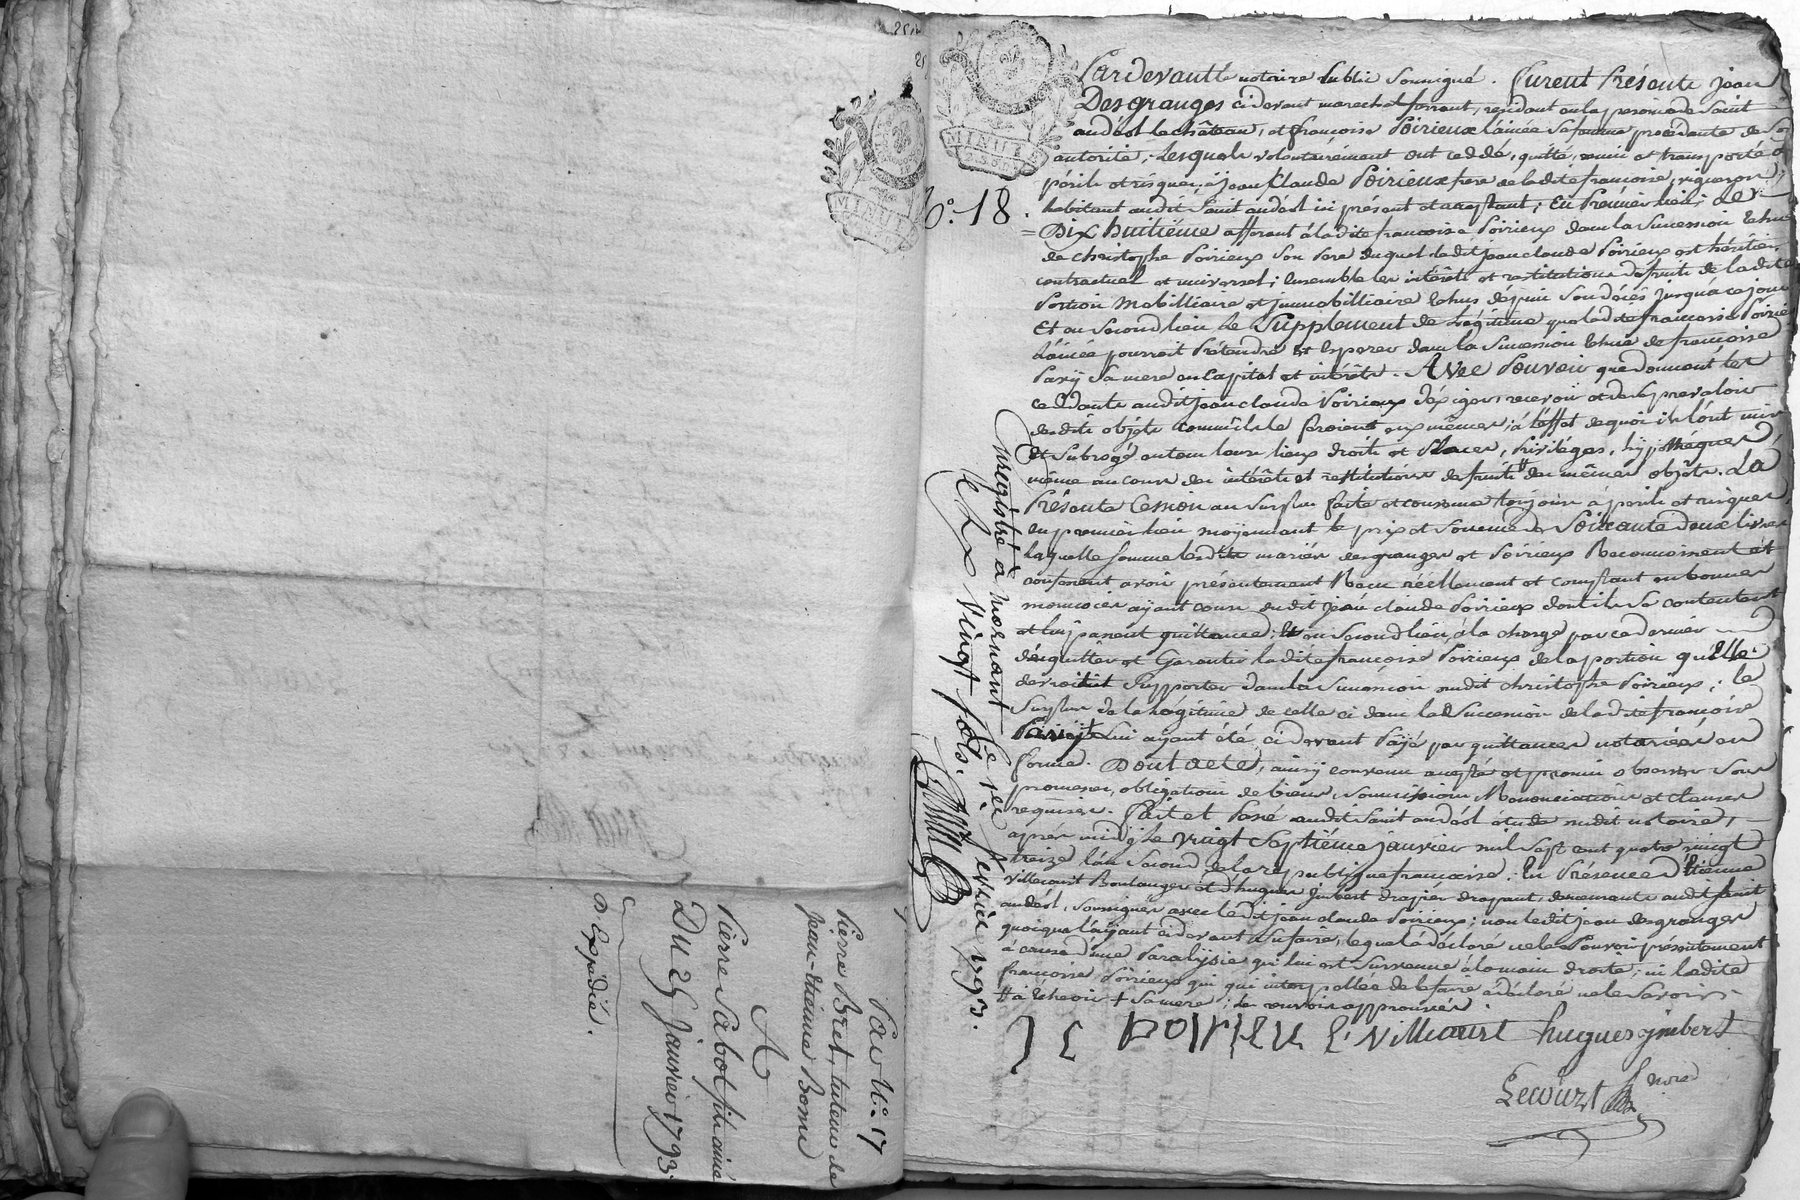 Par No. 17
Pierre Bret, tuteur de
jean-Etienne Bonne
A
Pierre Sabot fils aîné
Du 25 janvier 1793.
Expédié.
MINUTE
MINUTE
No. 18.
Pardevant le notaire Public soussigné. furent Présents jean
Desgranges cidevant marechal ferrant, residant en la paroisse de Saint
andéol le château, et françoise Poirieux lainée sa femme procedante de son
autorité; lesquels volontairement ont ceddé, quitté, remis et transporté a
périls et risques, à jean Claude Poirieux frere de ladite françoise, vigneron
habitant audit Saint andéol ici présent et acceptant; En Premier lieu, le
Dix huitième afferant à ladite françoise Poirieux dans la Succession échue
de christophe Poirieux son Pere duquel ledit jean claude Poirieux est héritier
contractuel et universel; ensemble les intérêts et restitutions de fruits de ladite
Portion Mobilliaire et jmmobilliaire échus depuis son décès jusqu'à ce jour
Et au second lieu le Supplement de Légitime que ladite françoise Poirieux
lainée pourroit Prétendre et Esperer dans la Succession échue de françoise
sa mere en Capital et intérêts. Avec Pouvoir que donnent les
ceddants audit jean claude Poirieux d'éxiger recevoir et de se prevaloir
desdits objets comme ils le feroient eux mêmes; à l'effet de quoi ils l'ont mis
et Subrogé en tous leurs lieux droits et Places, Privilèges, hÿpotheques,
même au cours des intérêts et restitutions de fruits des mêmes objets. La
Présente Cession au surplus faite et convenue toujours a perils et risques
en premier lieu moÿennant le prix et Somme de Soixante deux livres
laquelle somme lesdits mariés desgranges et Poirieux Reconnoissent et
confessent avoir présentement Reçu réellement et comptant en bonnes
monnoies aÿant cours dudit jean claude Poirieux dont ils se contentent
et lui passent quittance; Et au second lieu, à la charge par ce dernier
d'acquitter et Garantir ladite françoise Poirieux de la portion qu'elle
devroit Supporter dans la Succession dudit christophe Poirieux; le
Surplus de la Légitime de celle ci dans la Succession de ladite françoise
lui aÿant été cidevant Païé par quittances notariées en
forme. Dont acte, ainsÿ convenu accepté et promis observer sous
promesses, obligations de biens, soumissions, Renonciations et clauses
requises. Fait et Passé audit Saint andéol étude dudit notaire,
après midÿ le vingt Septième janvier mil sept cent quatre vingt
treize l'an second de la republique françoise. En Présence d'Etienne
Villecourt Boulanger et d'hugues jmbert drapier drapant, demeurants audit Saint
andéol, soussignés avec ledit jean claude Poirieux; non ledit jean desgranges
quoique l'aÿant cidevant Su faire, lequel a déclaré ne le Pouvoir présentement
à cause d'une Paralÿsie qui lui est Survenue à la main droite; ni ladite
françoise Poirieux qui interpellée de le faire a déclaré ne le Savoir.
à échoir + sa mere; les renvois approuvés.
J C POIRIEU E. Villecourt hugues jmbert
Lecourt Nore
Enregistré à mornant le 1er février 1793.
Reçu vingt sols.